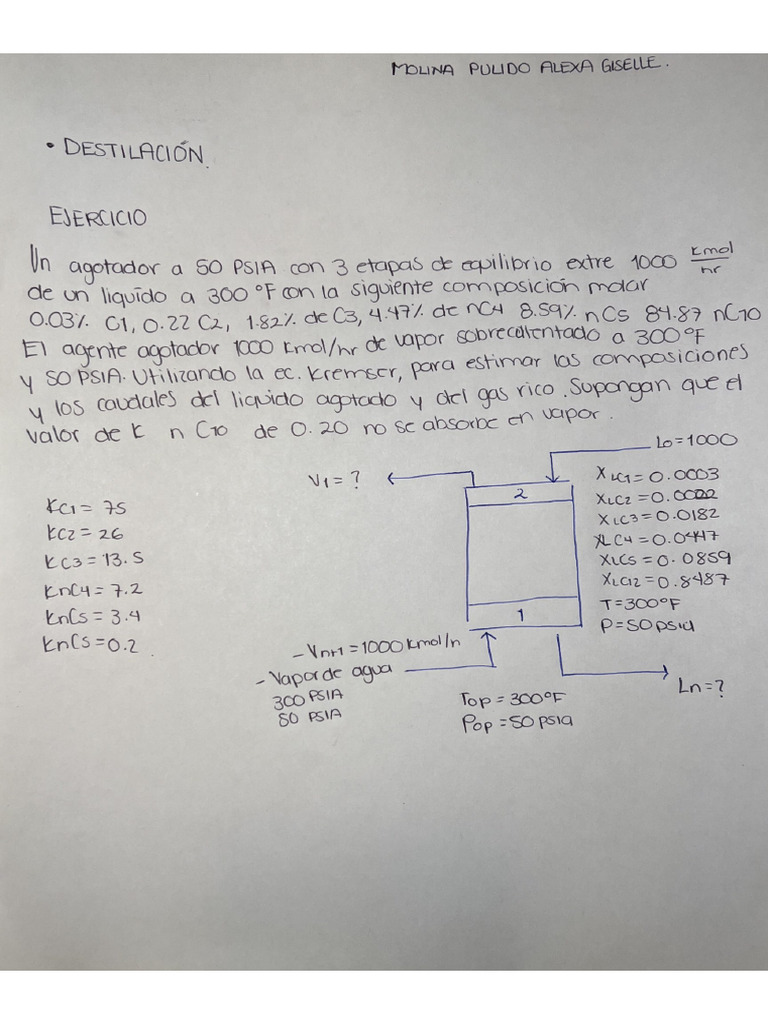 MOLINA PULIDO ALEXA GISELLE.
• DESTILACIÓN.
EJERCICIO
Un agotador a 50 PSIA con 3 etapas de equilibrio extre 1000 kmol/hr
de un liquído a 300 °F con la siguiente composición molar
0.03% C1, 0.22 C2, 1.82% de C3, 4.47% de nC4 8.59% nC5 84.87 nC10
El agente agotador 1000 kmol/hr de vapor sobrecalentado a 300°F
y 50 PSIA. Utilizando la ec. Kremser, para estimar las composiciones
y los caudales del liquido agotado y del gas rico. Supongan que el
valor de K n C10 de 0.20 no se absorbe en vapor.
KC1 = 75
KC2 = 26
KC3 = 13.5
KnC4 = 7.2
KnC5 = 3.4
KnC5 = 0.2.
V1 = ?
Lo = 1000
2
1
XLC1 = 0.0003
XLC2 = 0.0022
XLC3 = 0.0182
XLC4 = 0.0447
XLC5 = 0.0859
XLC12 = 0.8487
T = 300°F
P = 50 psia
- Vn+1 = 1000 kmol/h
- Vapor de agua
300 PSIA
50 PSIA
Top = 300°F
Pop = 50 psia
Ln = ?